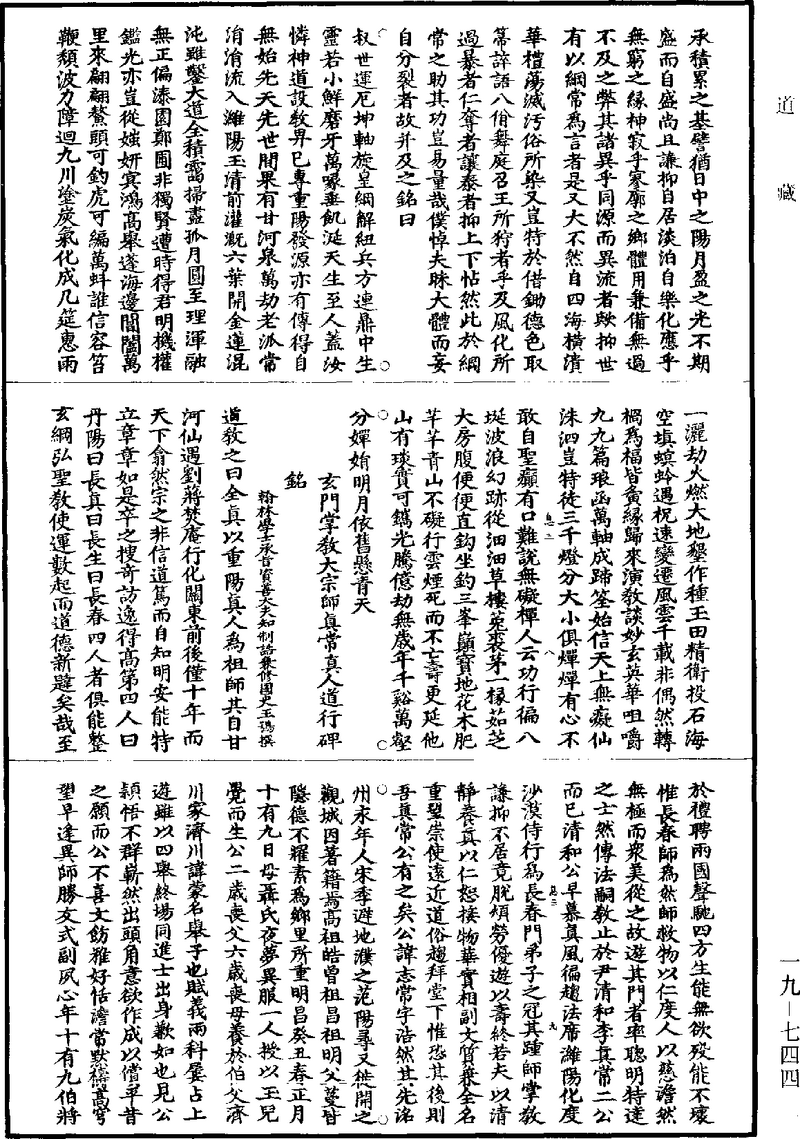 道藏
承積累之基譬猶日中之陽月盈之光不期
盛而自盛尚且謙抑自居淡泊自樂化應乎
無窮之緣神寂乎寥廓之鄉體用兼備無過
不及之弊其諸異乎同源而異流者歟抑世
有以綱常為言者是又大不然自四海橫潰
華禮蕩滅污俗所染又豈特於借鋤德色取
箒誶語八佾舞庭召王所狩者乎及風化所
過暴者仁奪者讓泰者抑上下怗然此於綱
常之助其功豈易量哉僕悼夫昧大體而妄
自分裂者故并及之銘曰
叔世運厄坤軸旋皇綱解紐兵方連鼎中生
靈若小鮮磨牙萬喙垂飢涎天生至人蓋汝
憐神道設教畀已專重陽發源亦有傳得自
無始先天先世間果有甘河泉萬劫老派常
涓涓流入濰陽玉清前灌溉六葉開金蓮混
沌雖鑿大道全積靄掃盡孤月圓至理渾融
無正偏漆園鄭圃非獨賢遭時得君明機權
鑑光亦豈從媸妍冥鴻高舉蓬海邊閶闔萬
里來翩翩鰲頭可釣虎可編萬蚪誰信容笞
鞭頹波力障迴九川塗炭氣化成几筵惠雨
一灑劫火燃大地墾作種玉田精衛投石海
空填螟蛉遇祝速變遷風雲千載非偶然轉
禍為福皆夤緣歸來演教談妙玄英華咀嚼
九九篇琅函萬軸成蹄筌始信天上無癡仙
洙泗豈特徒三千燈分大小俱燀燀有心不
敢自聖癲有口難說無礙禪人云功行徧八
埏波浪幻跡從沺沺草樓蒐裘第一椽茹芝
大房腹便便直鈎坐釣三峯巔寶地花木肥
芊芊青山不礙行雲煙死而不亡壽更延他
山有琰實可鐫光騰億劫無歲年千谿萬壑
分嬋娟明月依舊懸青天
玄門掌教大宗師真常真人道行碑
銘
翰林學士承旨資善大夫知制誥兼修國史王鶚撰
道教之曰全真以重陽真人為祖師其自甘
河仙遇劉蔣焚庵行化關東前後僅十年而
天下翕然宗之非信道篤而自知明安能特
立章章如是卒之搜奇訪逸得高第四人曰
丹陽曰長真曰長生曰長春四人者俱能整
玄綱弘聖教使運數起而道德新韙矣哉至
於禮聘兩國聲馳四方生能無欲歿能不壞
惟長春師為然師救物以仁度人以慈澹然
無極而衆美從之故遊其門者率聰明特達
之士然傳法嗣教止於尹清和李真常二公
而已清和公早慕真風徧趨法席濰陽化度
沙漠侍行為長春門弟子之冠其踵師掌教
謙抑不居竟脫煩勞優遊以壽終若夫以清
靜養真以仁恕接物華實相副文質兼全名
重望崇使遠近道俗趨拜堂下惟恐其後則
吾真常公有之矣公諱志常字浩然其先洺
州永年人宋季避地濮之范陽尋又徙開之
觀城因著籍焉高祖皓曾祖昌祖明父蔓皆
隱德不耀素為鄉里所重明昌癸丑春正月
十有九日母聶氏夜夢異服一人授以玉兒
覺而生公二歲喪父六歲喪母養於伯父濟
川家濟川諱蒙名舉子也賦義兩科屢占上
遊雖以四舉終場同進士出身歉如也見公
穎悟不群嶄然出頭角意欲作成以償早昔
之願而公不喜文飾雅好恬澹常默禱高穹
望早逢異師勝友式副夙心年十有九伯將
息二
八
息三
九
一九－七四四